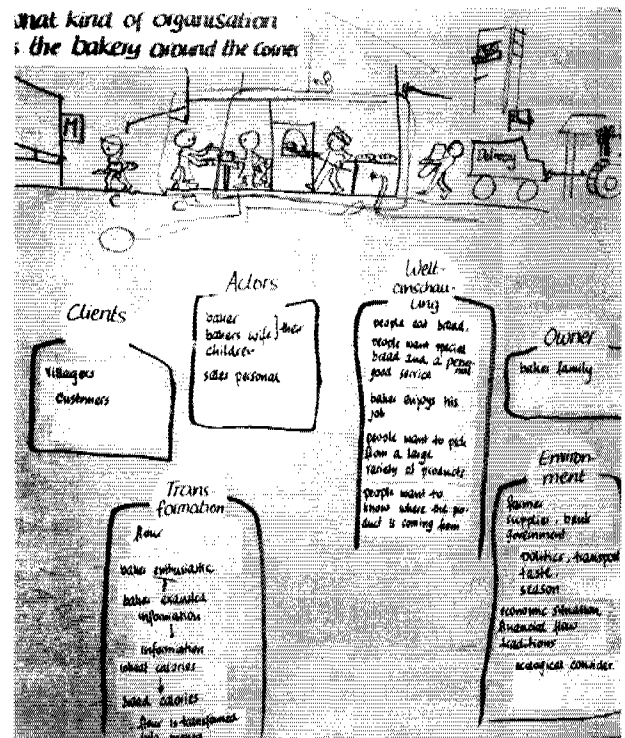 what kind of organisation
s the bakery around the corner
M
Clients
Villagers
Customers
Actors
baker
bakers wife } their
children
sales personal
Welt-
anschau-
ung
people eat bread.
people want special
bread and a perso-
nal
good service
baker enjoys his
job
people want to pick
from a large
variety of products
people want to
know where the pro-
duct is coming from
Owner
baker family
Environ-
ment
farmer
supplier, bank
government
politics, transport
taste
season
economic situation
financial flow
traditions
ecological consider.
Trans
formation
flour
baker enthusiastic
baker exausted
information
information
wheat calories
bread calories
flour is transformed
into money